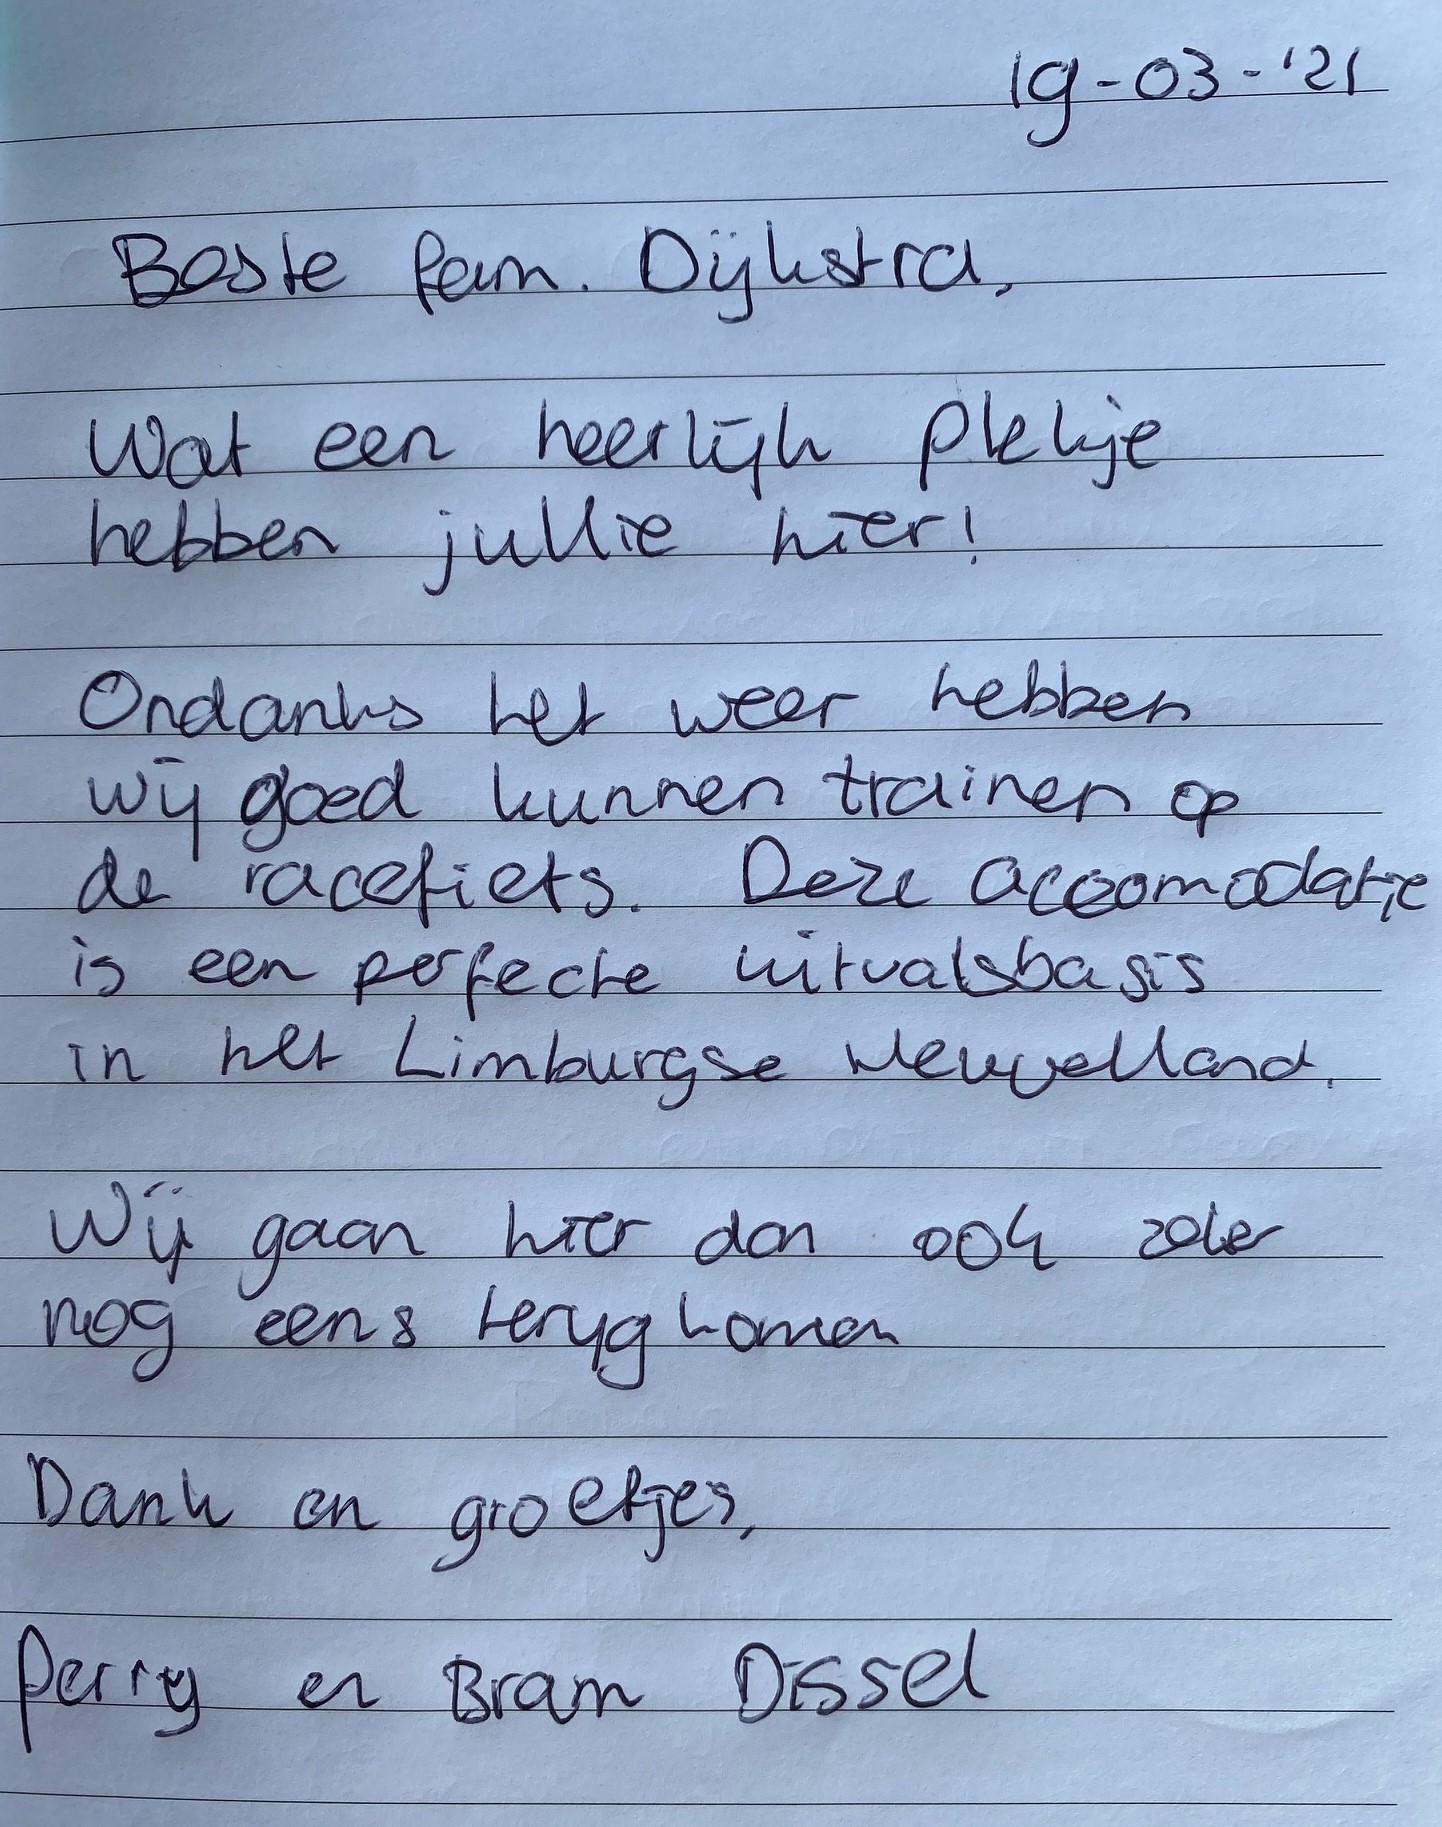 19-03-'21
Beste fam. Dijkstra,
Wat een heerlijk plekje
hebben jullie hier!
Ondanks het weer hebben
wij goed kunnen trainen op
de racefiets. Deze accomodatie
is een perfecte uitvalsbasis
in het Limburgse Heuvelland.
Wij gaan hier dan ook zeker
nog eens terug komen
Dank en groetjes,
Perry en Bram Dissel